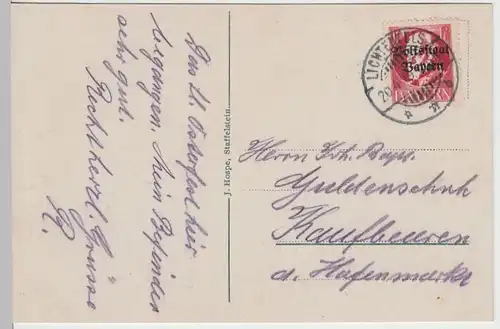 Das hl. Osterfest hier
begangen. Mein Befinden
sehr gut.
Recht herzl. Grüsse
R.
J. Hospe, Staffelstein.
LICHTENFELS
20
Volksstaat
Bayern
BAYERN
Herrn Joh. Bapt.
Guldenschuh
Kaufbeuren
a. Hafenmarkt